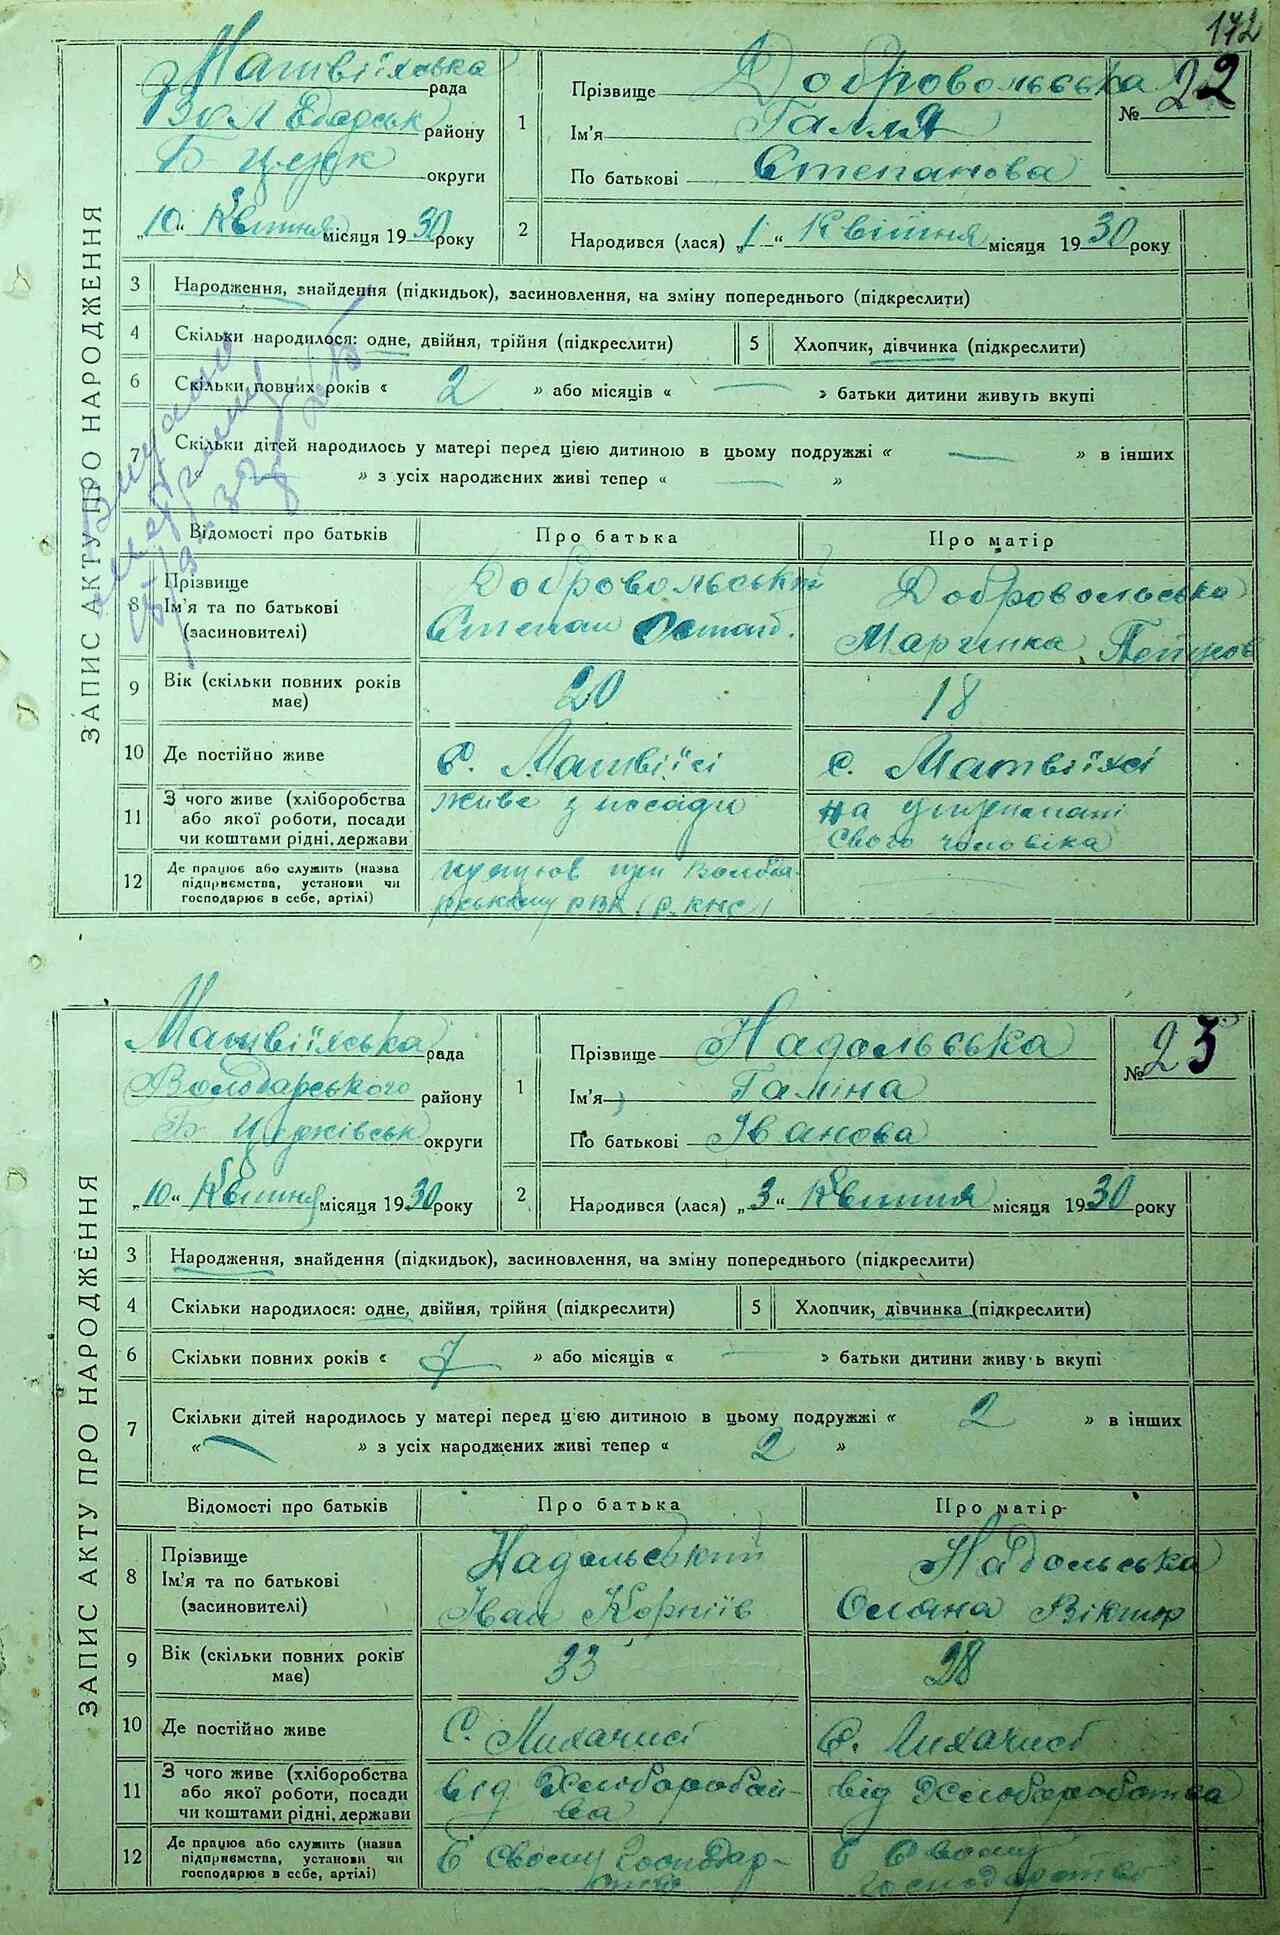 172
ЗАПИС АКТУ ПРО НАРОДЖЕННЯ
Матвіїхська рада
району
Б Церк округи
„10“ Квітня місяця 1930 року
1 Прізвище Добровольська
№ 22
Ім'я Галля
По батькові Степанова
2 Народився (лася) „1“ Квітня місяця 1930 року
3 Народження, знайдення (підкидьок), засиновлення, на зміну попереднього (підкреслити)
4 Скільки народилося: одне, двійня, трійня (підкреслити) 5 Хлопчик, дівчинка (підкреслити)
6 Скільки повних років « 2 » або місяців « — » батьки дитини живуть вкупі
7 Скільки дітей народилось у матері перед цією дитиною в цьому подружжі « — » в інших
« » з усіх народжених живі тепер « — »
Відомості про батьків Про батька Про матір
8 Прізвище Ім'я та по батькові (засиновителі)
Добровольський Степан Остап.
Добровольська Маринка
9 Вік (скільки повних років має) 20 18
10 Де постійно живе с. Матвіїсі с. Матвіїхсі
11 З чого живе (хліборобства або якої роботи, посади чи коштами рідні, держави
живе з посади
на утримані свого чоловіка
12 Де працює або служить (назва підприємства, установи чи господарює в себе, артілі)
при Волода-
рському РВК
—
ЗАПИС АКТУ ПРО НАРОДЖЕННЯ
Матвіїхська рада
Володарського району
Б Церківськ округи
„10“ Квітня місяця 1930 року
1 Прізвище Надольська
№ 23
Ім'я Галіна
По батькові Іванова
2 Народився (лася) „3“ Квітня місяця 1930 року
3 Народження, знайдення (підкидьок), засиновлення, на зміну попереднього (підкреслити)
4 Скільки народилося: одне, двійня, трійня (підкреслити) 5 Хлопчик, дівчинка (підкреслити)
6 Скільки повних років « 7 » або місяців « — » батьки дитини живуь вкупі
7 Скільки дітей народилось у матері перед цією дитиною в цьому подружжі « 2 » в інших
« — » з усіх народжених живі тепер « 2 »
Відомості про батьків Про батька Про матір
8 Прізвище Ім'я та по батькові (засиновителі)
Надольський Іван Корніїв
Надольська Оляна Віктор
9 Вік (скільки повних років має) 33 28
10 Де постійно живе С. Лихачисі С. Лихачисі
11 З чого живе (хліборобства або якої роботи, посади чи коштами рідні, держави
від
від Хлюбороботва
12 Де працює або служить (назва підприємства, установи чи господарює в себе, артілі)
В свому Господар-
ство
В Свому
Господарстві